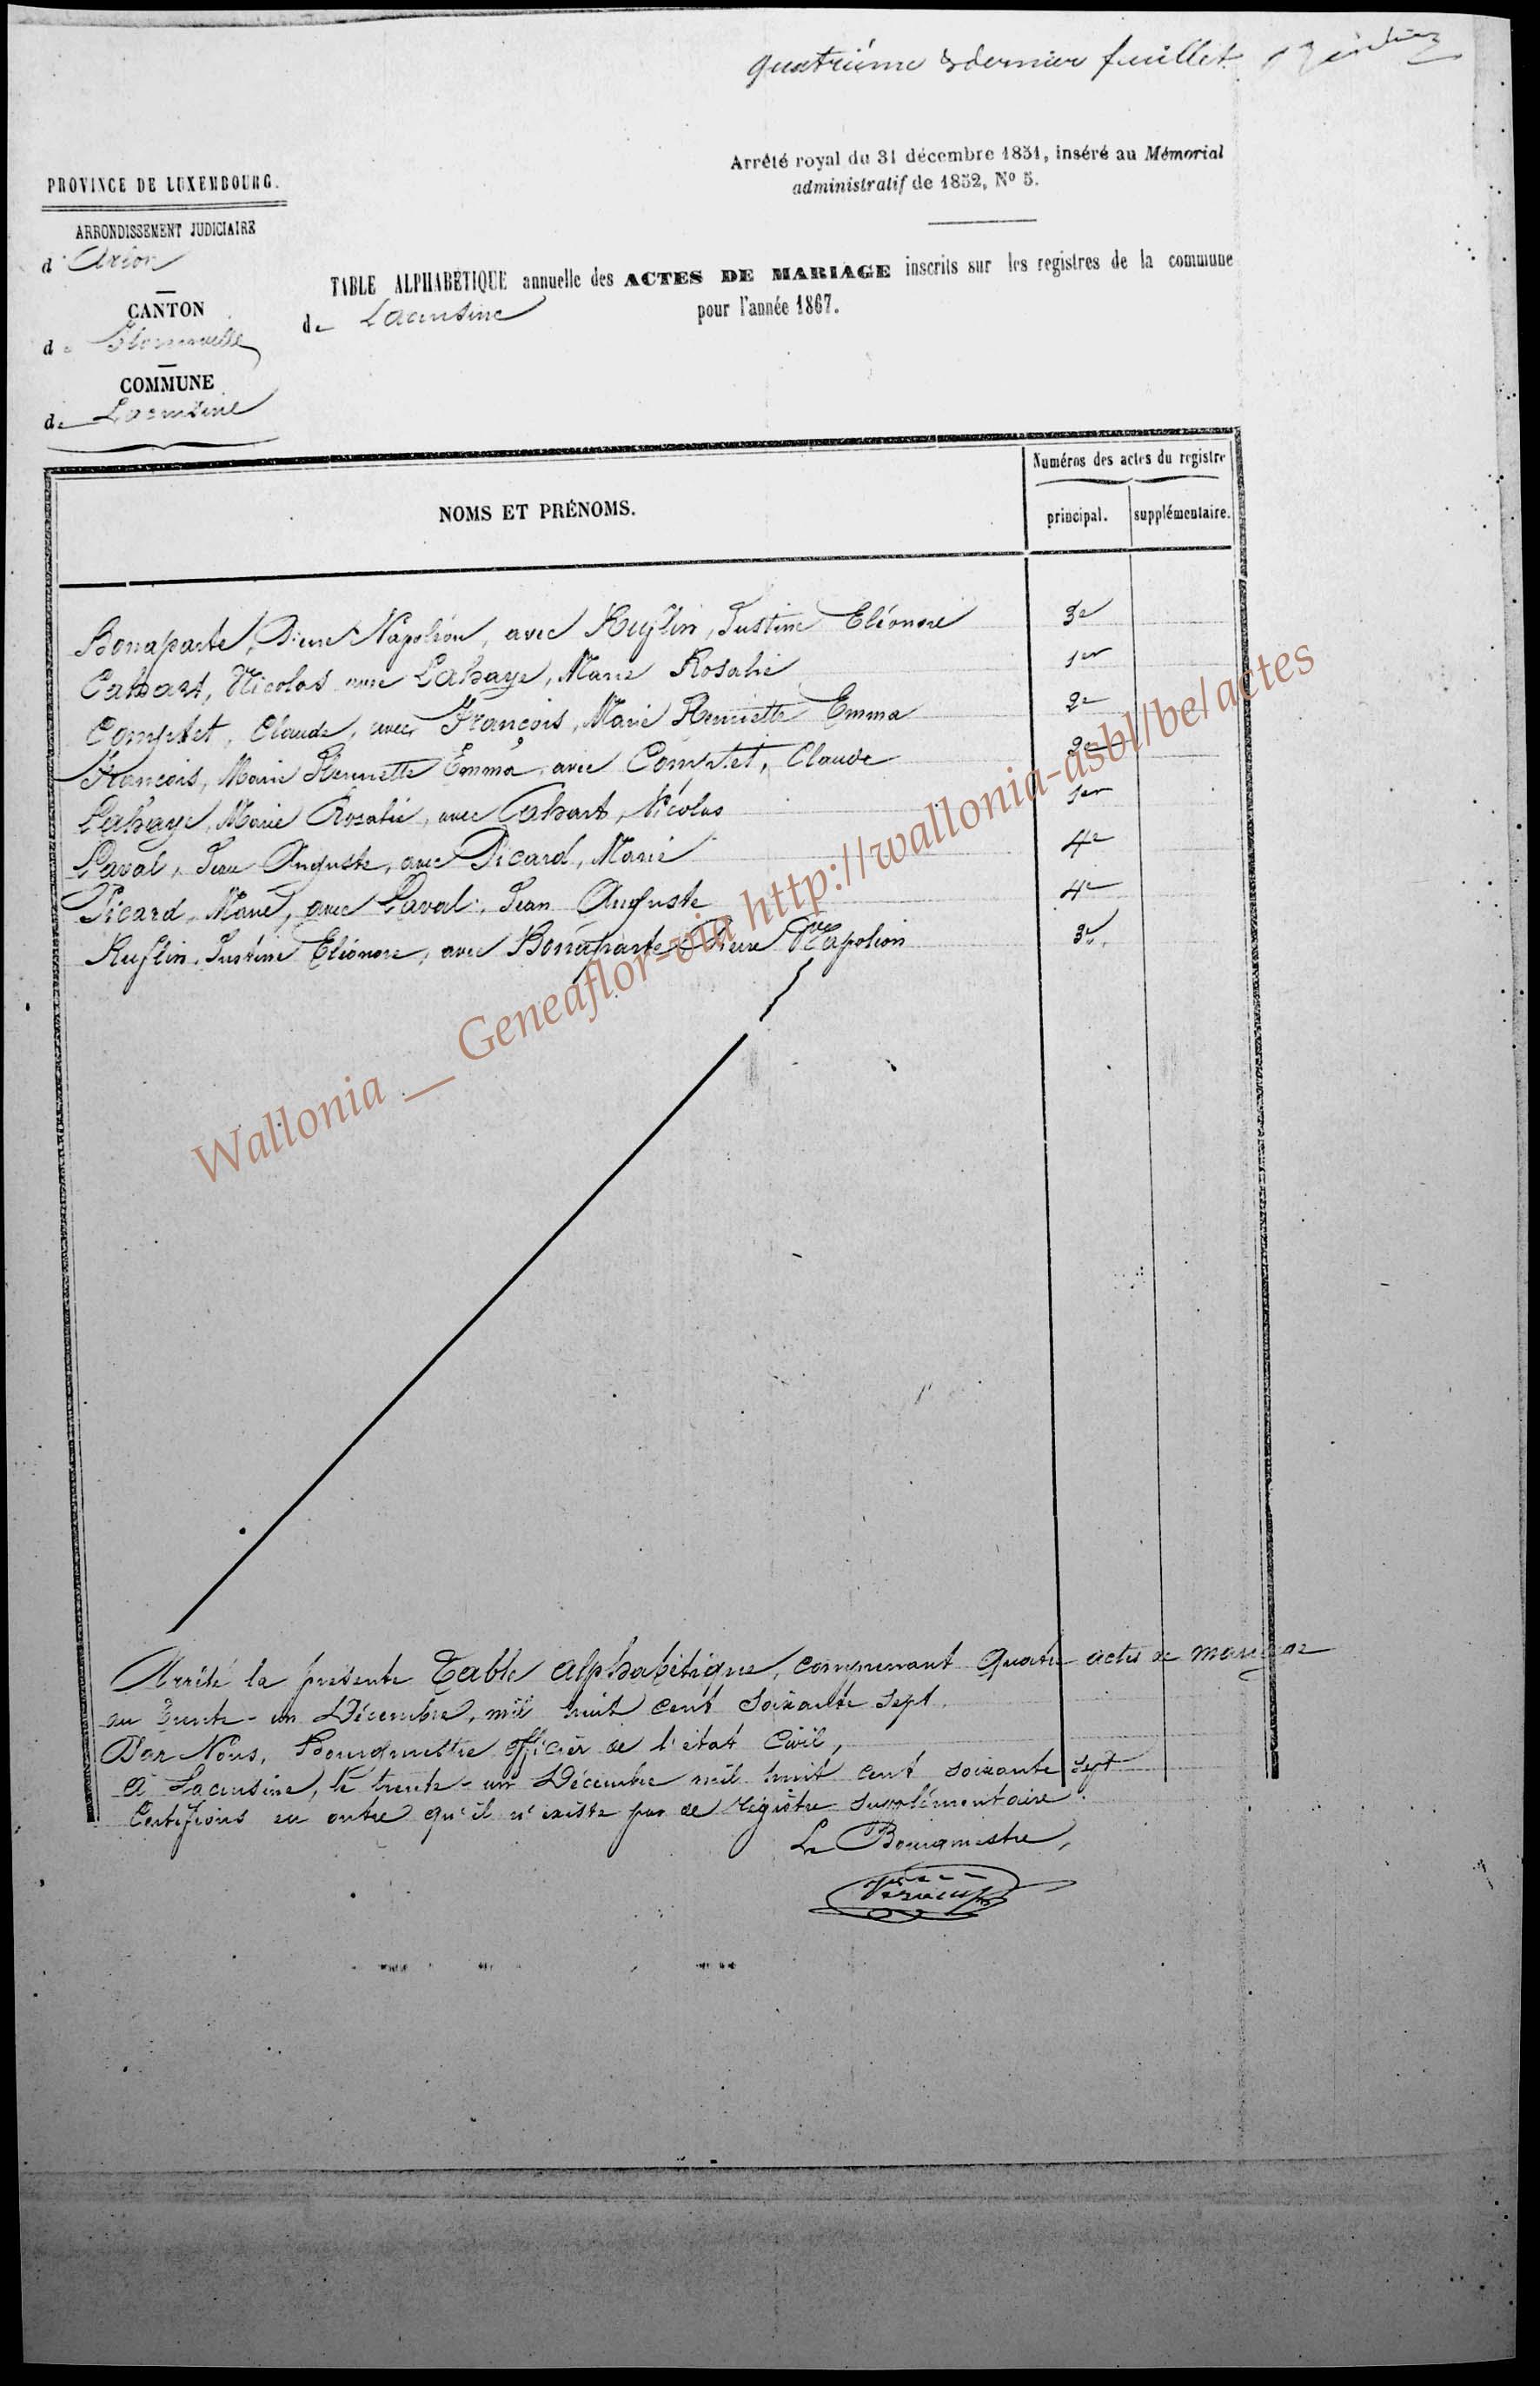 quatrième & dernier feuillet
Arrêté royal du 31 décembre 1851, inséré au Mémorial
administratif de 1852, Nº 5.
PROVINCE DE LUXEMBOURG.
ARRONDISSEMENT JUDICIAIRE
d'Arlon
CANTON
de Florenville
COMMUNE
de Lacuisine
TABLE ALPHABÉTIQUE annuelle des ACTES DE MARIAGE inscrits sur les registres de la commune
de Lacuisine pour l'année 1867.
NOMS ET PRÉNOMS.
Numéros des actes du registre
principal. supplémentaire.
Bonaparte, Pierre Napoléon, avec Ruflin, Justine Eléonore 3e
Cabart, Nicolas avec Lahaye, Marie Rosalie 1er
Comptet, Claude, avec François, Marie Henriette Emma 2e
François, Marie Henriette Emma, avec Comptet, Claude 2e
Lahaye, Marie Rosalie, avec Cabart, Nicolas 1er
Laval, Jean Auguste, avec Picard, Marie 4e
Picard, Marie, avec Laval, Jean Auguste 4e
Ruflin, Justine Eléonore, avec Bonaparte Pierre Napoléon 3e
Wallonia __ Geneaflor-via http://wallonia-asbl/be/actes
Arrêté la présente Table alphabétique, comprenant quatre actes de mariage
au trente-un Décembre, mil huit cent soixante sept.
Par Nous, Bourgmestre officier de l'état Civil,
A Lacuisine, le trente-un Décembre mil huit cent soixante sept
Certifions en outre qu'il n'existe pas de régistre supplémentaire.
Le Bourgmestre,